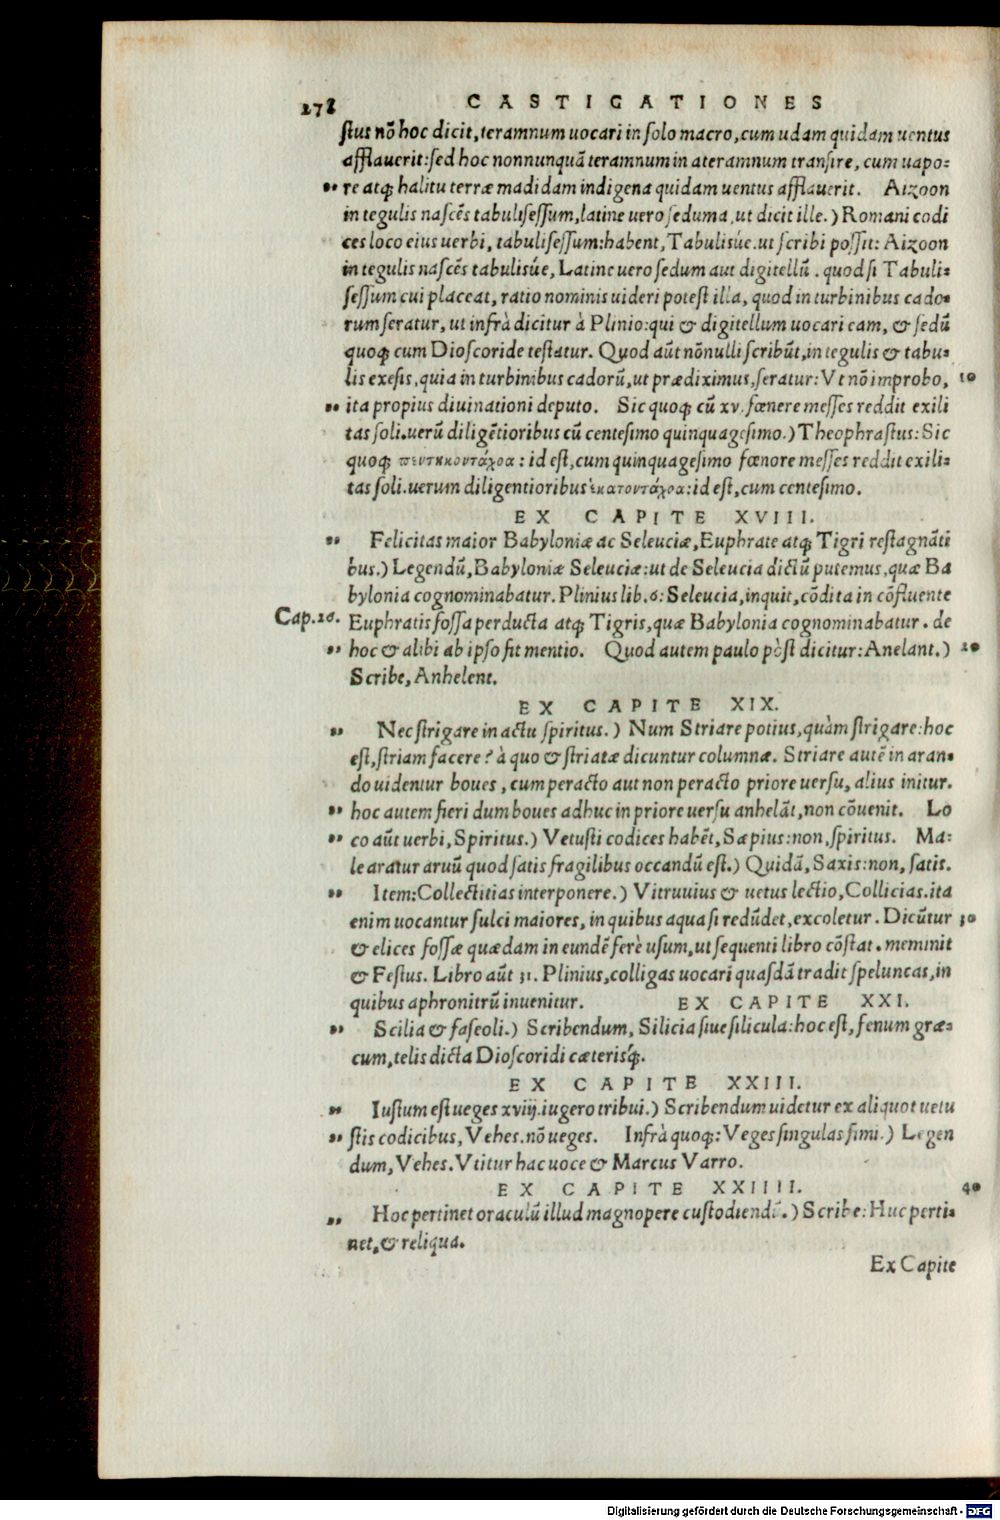 278 CASTIGATIONES
stus nõ hoc dicit, teramnum uocari in solo macro, cum udam quidam uentus
afflauerit: sed hoc nonnunquã teramnum in ateramnum transire, cum uapo-
„ re atq; halitu terræ madidam indigena quidam uentus afflauerit. Aizoon
in tegulis nascẽs tabulisessum, latine uero seduma, ut dicit ille.) Romani codi
ces loco eius uerbi, tabulisessum: habent, Tabulisúe. ut scribi possit: Aizoon
in tegulis nascẽs tabulisúe, Latine uero sedum aut digitellũ. quod si Tabuli-
sessum cui placeat, ratio nominis uideri potest illa, quod in turbinibus cado-
rum seratur, ut infrà dicitur à Plinio: qui & digitellum uocari eam, & sedũ
quoq; cum Dioscoride testatur. Quod aũt nõnulli scribũt, in tegulis & tabu-
lis exesis, quia in turbinibus cadorũ, ut prædiximus, seratur: Vt nõ improbo, 10
„ ita propius diuinationi deputo. Sic quoq; cũ xv. fœnere messes reddit exili
tas soli. uerũ diligẽtioribus cũ centesimo quinquagesimo.) Theophrastus: Sic
quoq; πεντηκοντάχοα: id est, cum quinquagesimo fœnore messes reddit exili-
tas soli. uerum diligentioribus ἑκατοντάχοα: id est, cum centesimo.
EX CAPITE XVIII.
„ Felicitas maior Babyloniæ ac Seleuciæ, Euphrate atq; Tigri restagnãti
bus.) Legendũ, Babyloniæ Seleuciæ: ut de Seleucia dictũ putemus, quæ Ba
bylonia cognominabatur. Plinius lib. 6: Seleucia, inquit, cõdita in cõfluente
Cap. 26. Euphratis fossa perducta atq; Tigris, quæ Babylonia cognominabatur. de
„ hoc & alibi ab ipso fit mentio. Quod autem paulo pòst dicitur: Anelant.) 20
Scribe, Anhelent.
EX CAPITE XIX.
„ Nec strigare in actu spiritus.) Num Striare potius, quàm strigare: hoc
est, striam facere? à quo & striatæ dicuntur columnæ. Striare autẽ in aran-
do uidentur boues, cum peracto aut non peracto priore uersu, alius initur.
„ hoc autem fieri dum boues adhuc in priore uersu anhelãt, non cõuenit. Lo
„ co aũt uerbi, Spiritus.) Vetusti codices habẽt, Sæpius: non, spiritus. Ma-
le aratur aruũ quod satis fragilibus occandũ est.) Quidã, Saxis: non, satis.
„ Item: Collectitias interponere.) Vitruuius & uetus lectio, Collicias. ita
enim uocantur sulci maiores, in quibus aqua si redũdet, excoletur. Dicũtur 30
& elices fossæ quædam in eundẽ ferè usum, ut sequenti libro cõstat. meminit
& Festus. Libro aũt 31. Plinius, colligas uocari quasdã tradit speluncas, in
quibus aphronitrũ inuenitur. EX CAPITE XXI.
„ Scilia & faseoli.) Scribendum, Silicia siue silicula: hoc est, fenum græ-
cum, telis dicta Dioscoridi cæterisq́;.
EX CAPITE XXIII.
„ Iustum est ueges xviij. iugero tribui.) Scribendum uidetur ex aliquot uetu
„ stis codicibus, Vehes. nõ ueges. Infrà quoq;: Veges singulas fimi.) Legen
dum, Vehes. Vtitur hac uoce & Marcus Varro.
EX CAPITE XXIIII. 40
„ Hoc pertinet oraculũ illud magnopere custodiendũ.) Scribe: Huc perti-
net, & reliqua.
Ex Capite
Digitalisierung gefördert durch die Deutsche Forschungsgemeinschaft - DFG